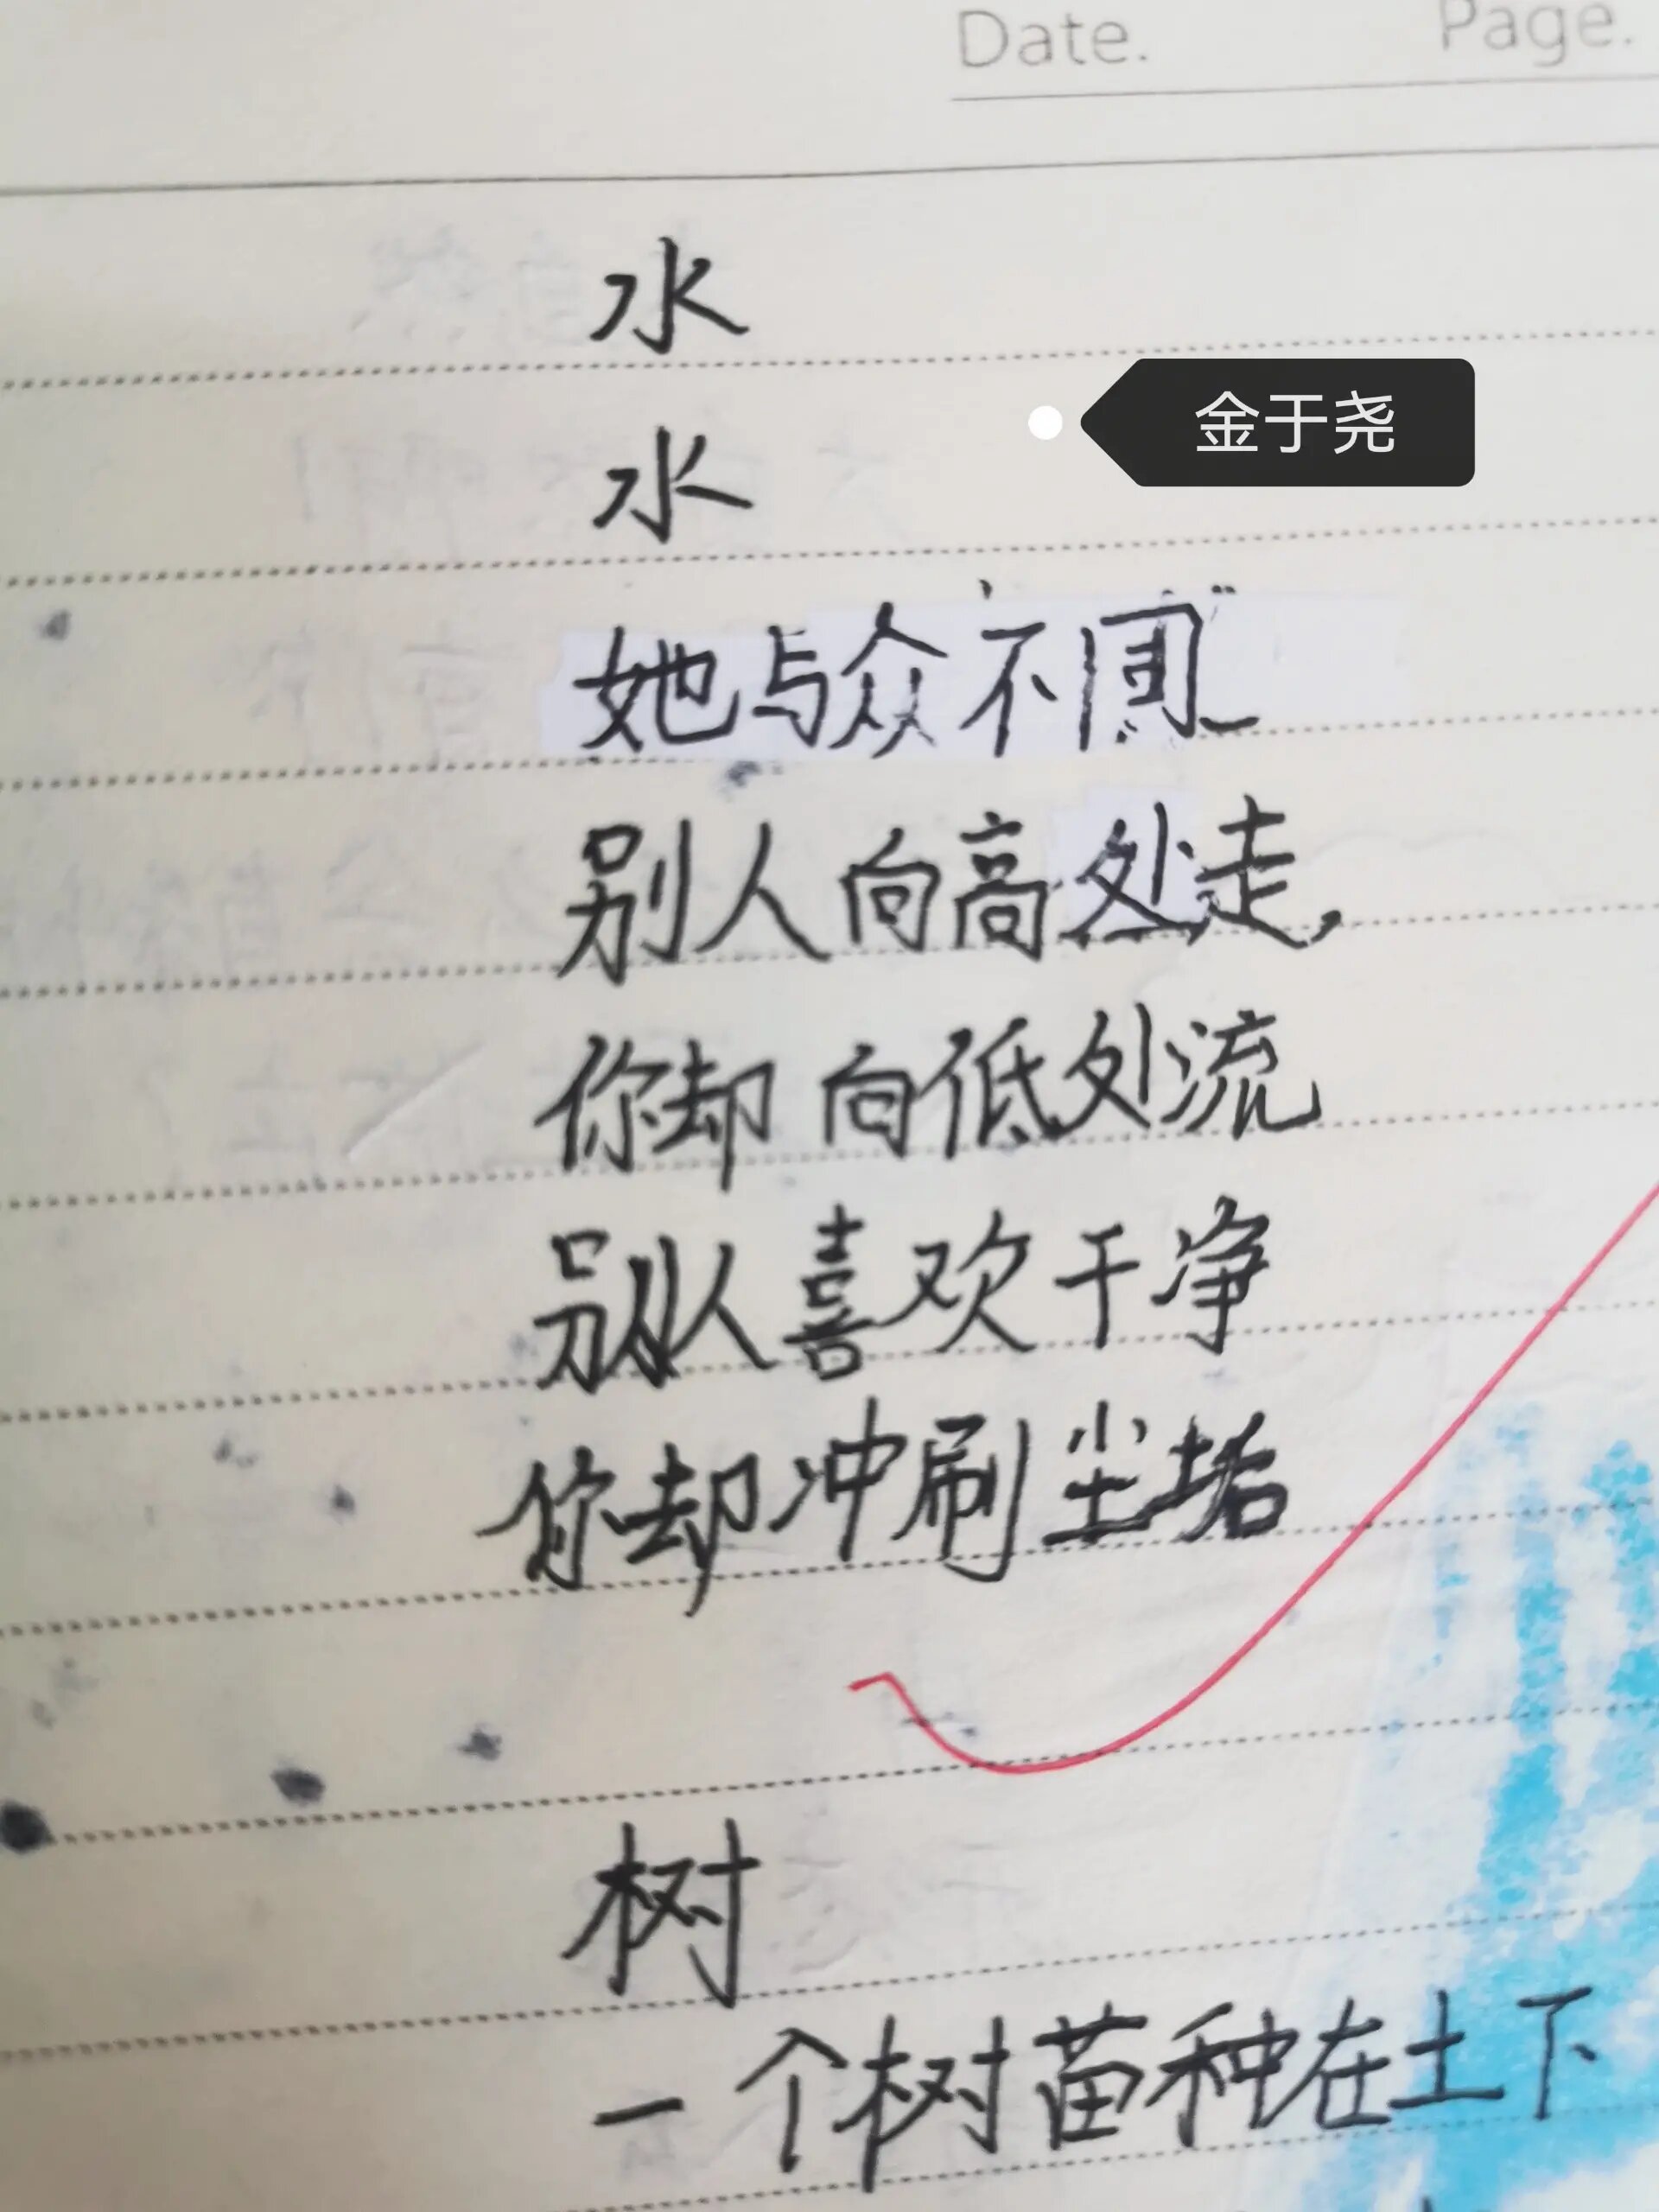 Date. Page.
水
金于尧
水
她与众不同
别人向高处走,
你却向低处流
别人喜欢干净
你却冲刷尘垢
树
一个树苗种在土下